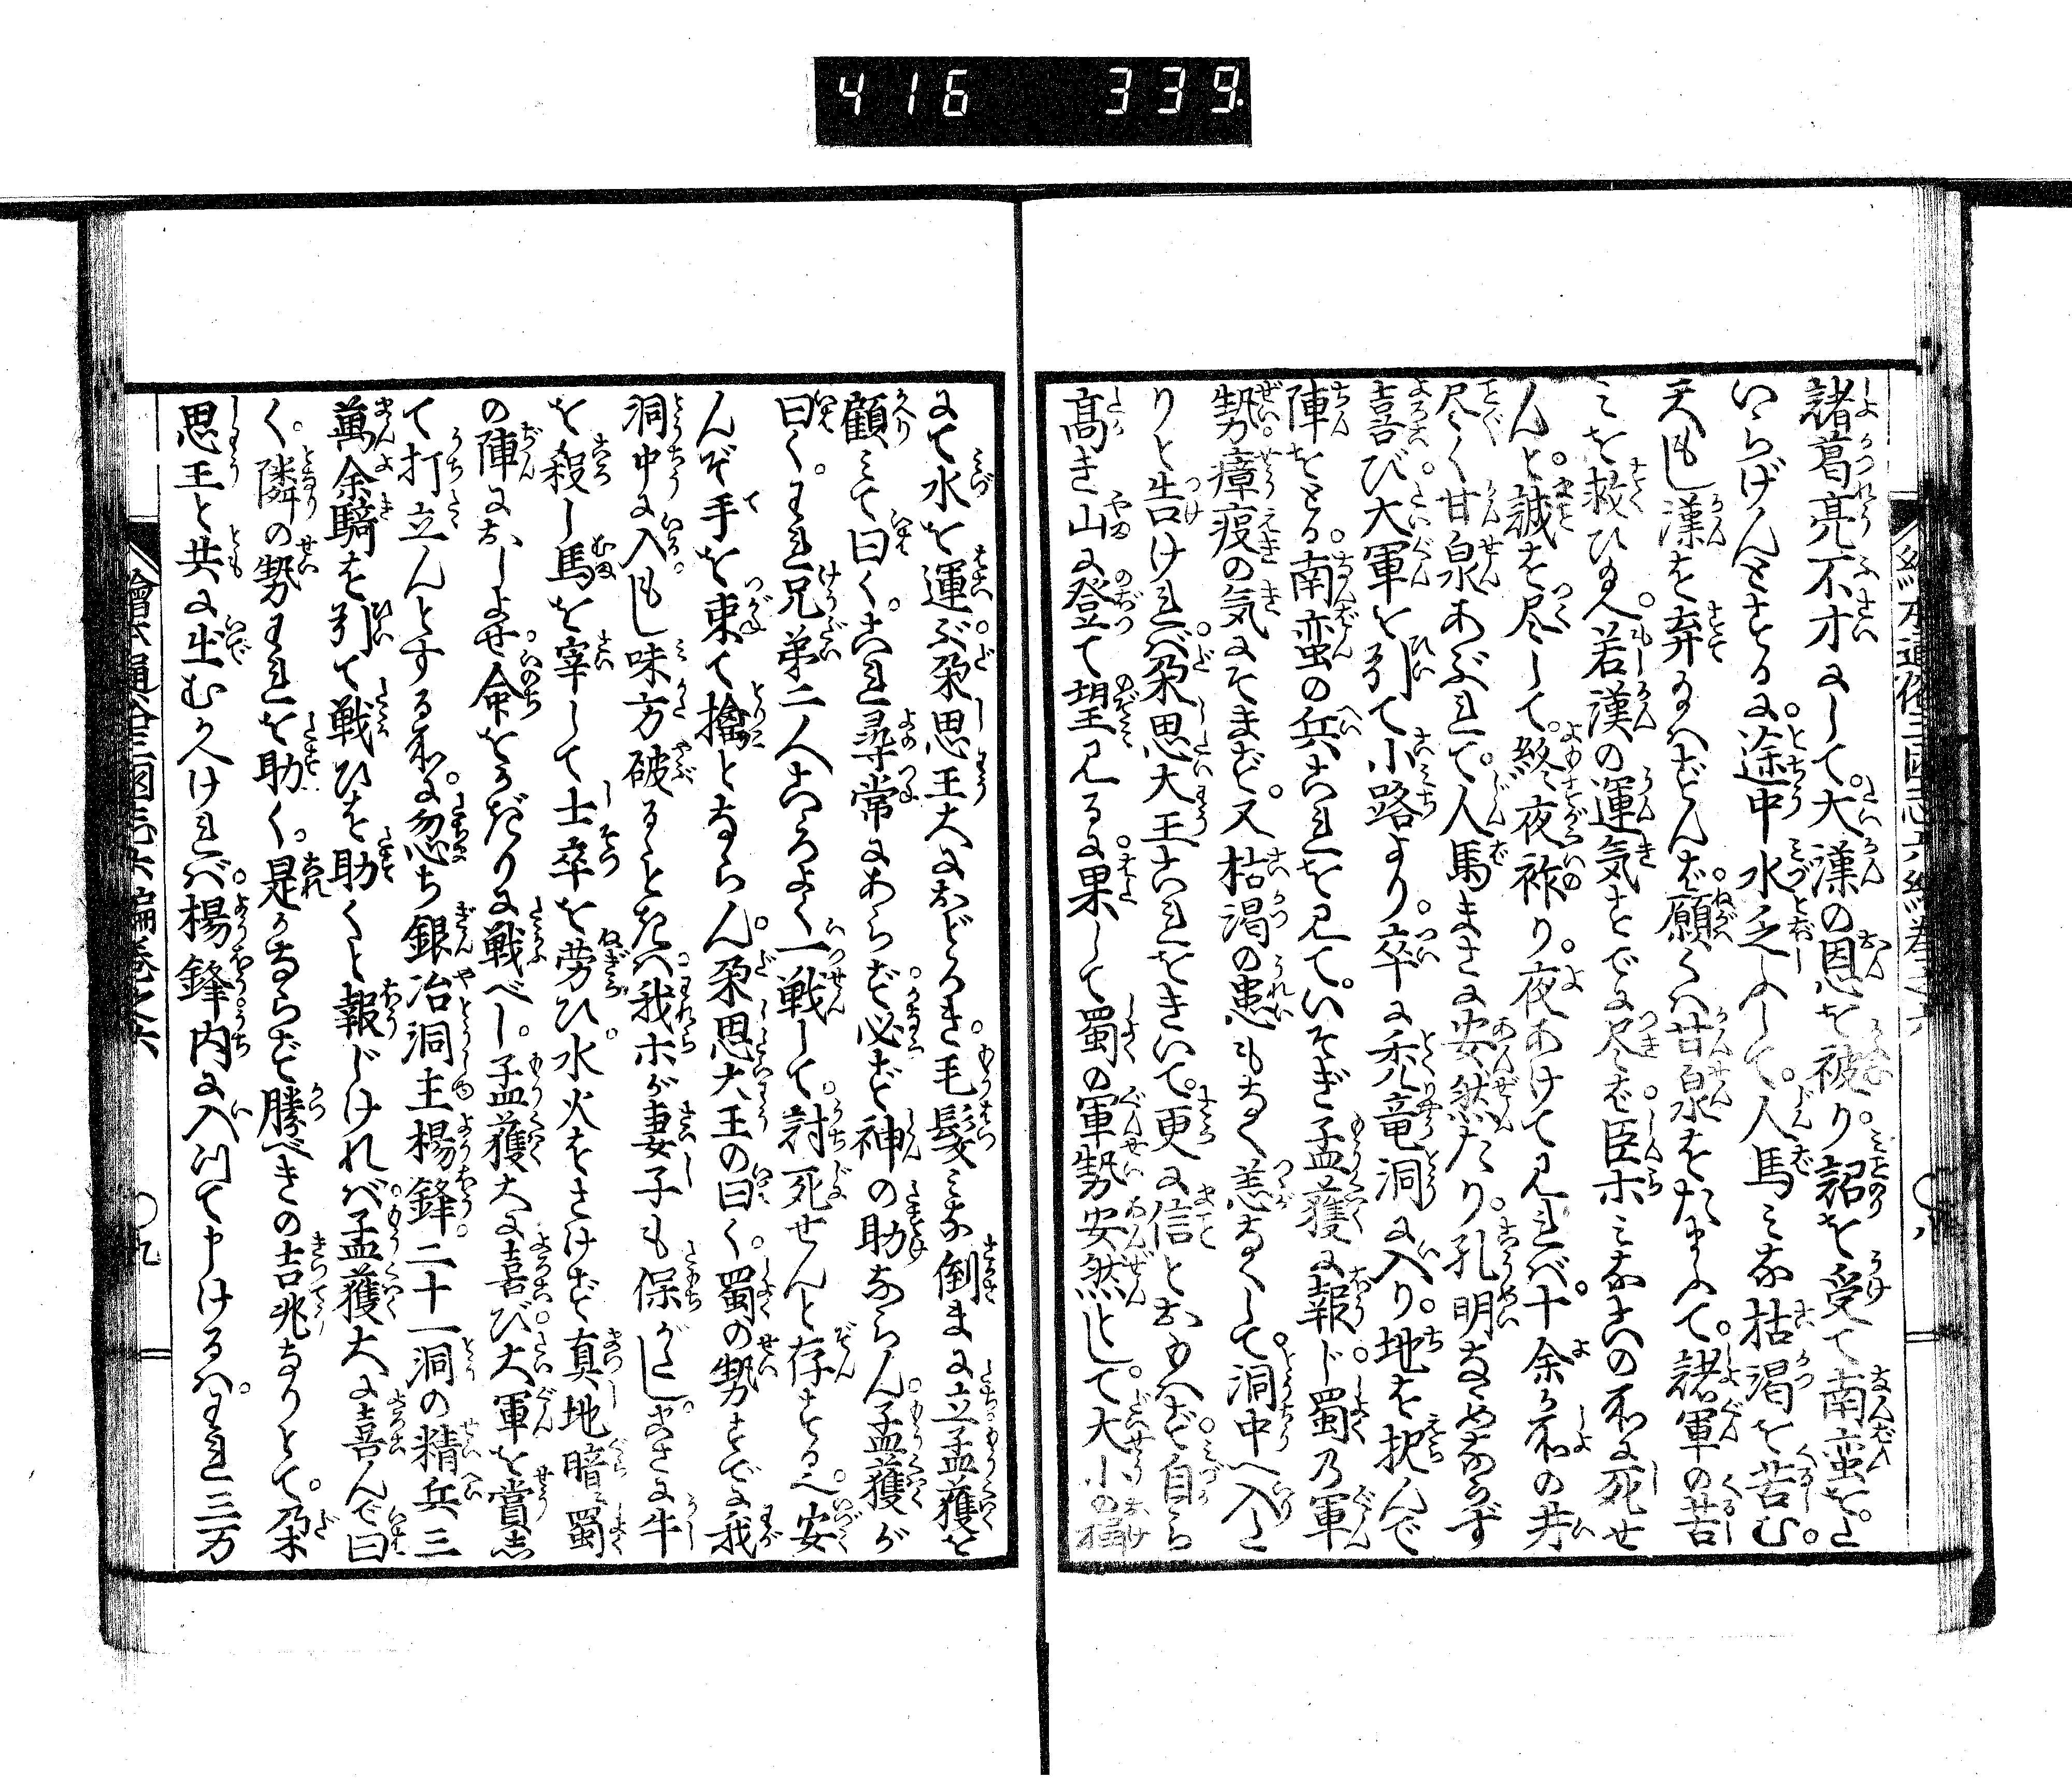 416 339
諸葛亮不才にして。大漢の恩を被り。詔を受て南蛮をた
いらげんとする に。途中水乏ふして。人馬みな枯渇を苦む。
天もし漢を弃給はずんば。願くは甘泉をたまふて。諸軍の苦
みを救ひ給へ。若漢の運気すでに尽ば。臣ホみな此の所に死せ
んと。誠を尽して。終夜祚り。夜あけて見れば。十余ケ所の井
尽く甘泉あぶれて。人馬まさに安然たり。孔明なゝめならず
喜び。大軍を引て小路より。卒に禿竜洞に入り。地を択んで
陣をとる。南蛮の兵これを見て。いそぎ孟獲に報じ。蜀乃軍
勢。瘴疫の気にそまず。又枯渇の患もなく。恙なくして。洞中へ入た
りと告ければ。朶思大王これをきいて。更に信とおもはず。自ら
高き山に登て望見るに。果して蜀の軍勢安然として。大小の桶
にて水を運ぶ。朶思王大におどろき。毛髪みな倒まに立。孟獲を
顧みて曰く。これ尋常にあらず。必ず神の助ならん。孟獲が
曰く。われ兄弟二人こゝろよく一戦して。討死せんと存ずる也。安
んぞ手を束て擒とならん。朶思大王の曰く。蜀の勢すでに我
洞中に入。もし味方破るゝときは。我ホが妻子も保がたし。まさに牛
を殺し馬を宰して士卒を労ひ。水火をさけず真地暗に蜀
の陣におしよせ。命をかぎりに戦べし。孟獲大に喜び。大軍を賞し
て打立んとする所に。忽ち銀冶洞主楊鋒。二十一洞の精兵三
萬余騎を引て戦ひを助くと報じければ。孟獲大に喜んで曰
く。隣の勢われを助く。是かならず勝べきの吉兆なりとて。朶
思王と共に出むかへければ。楊鋒。内に入て申けるは。われ三万